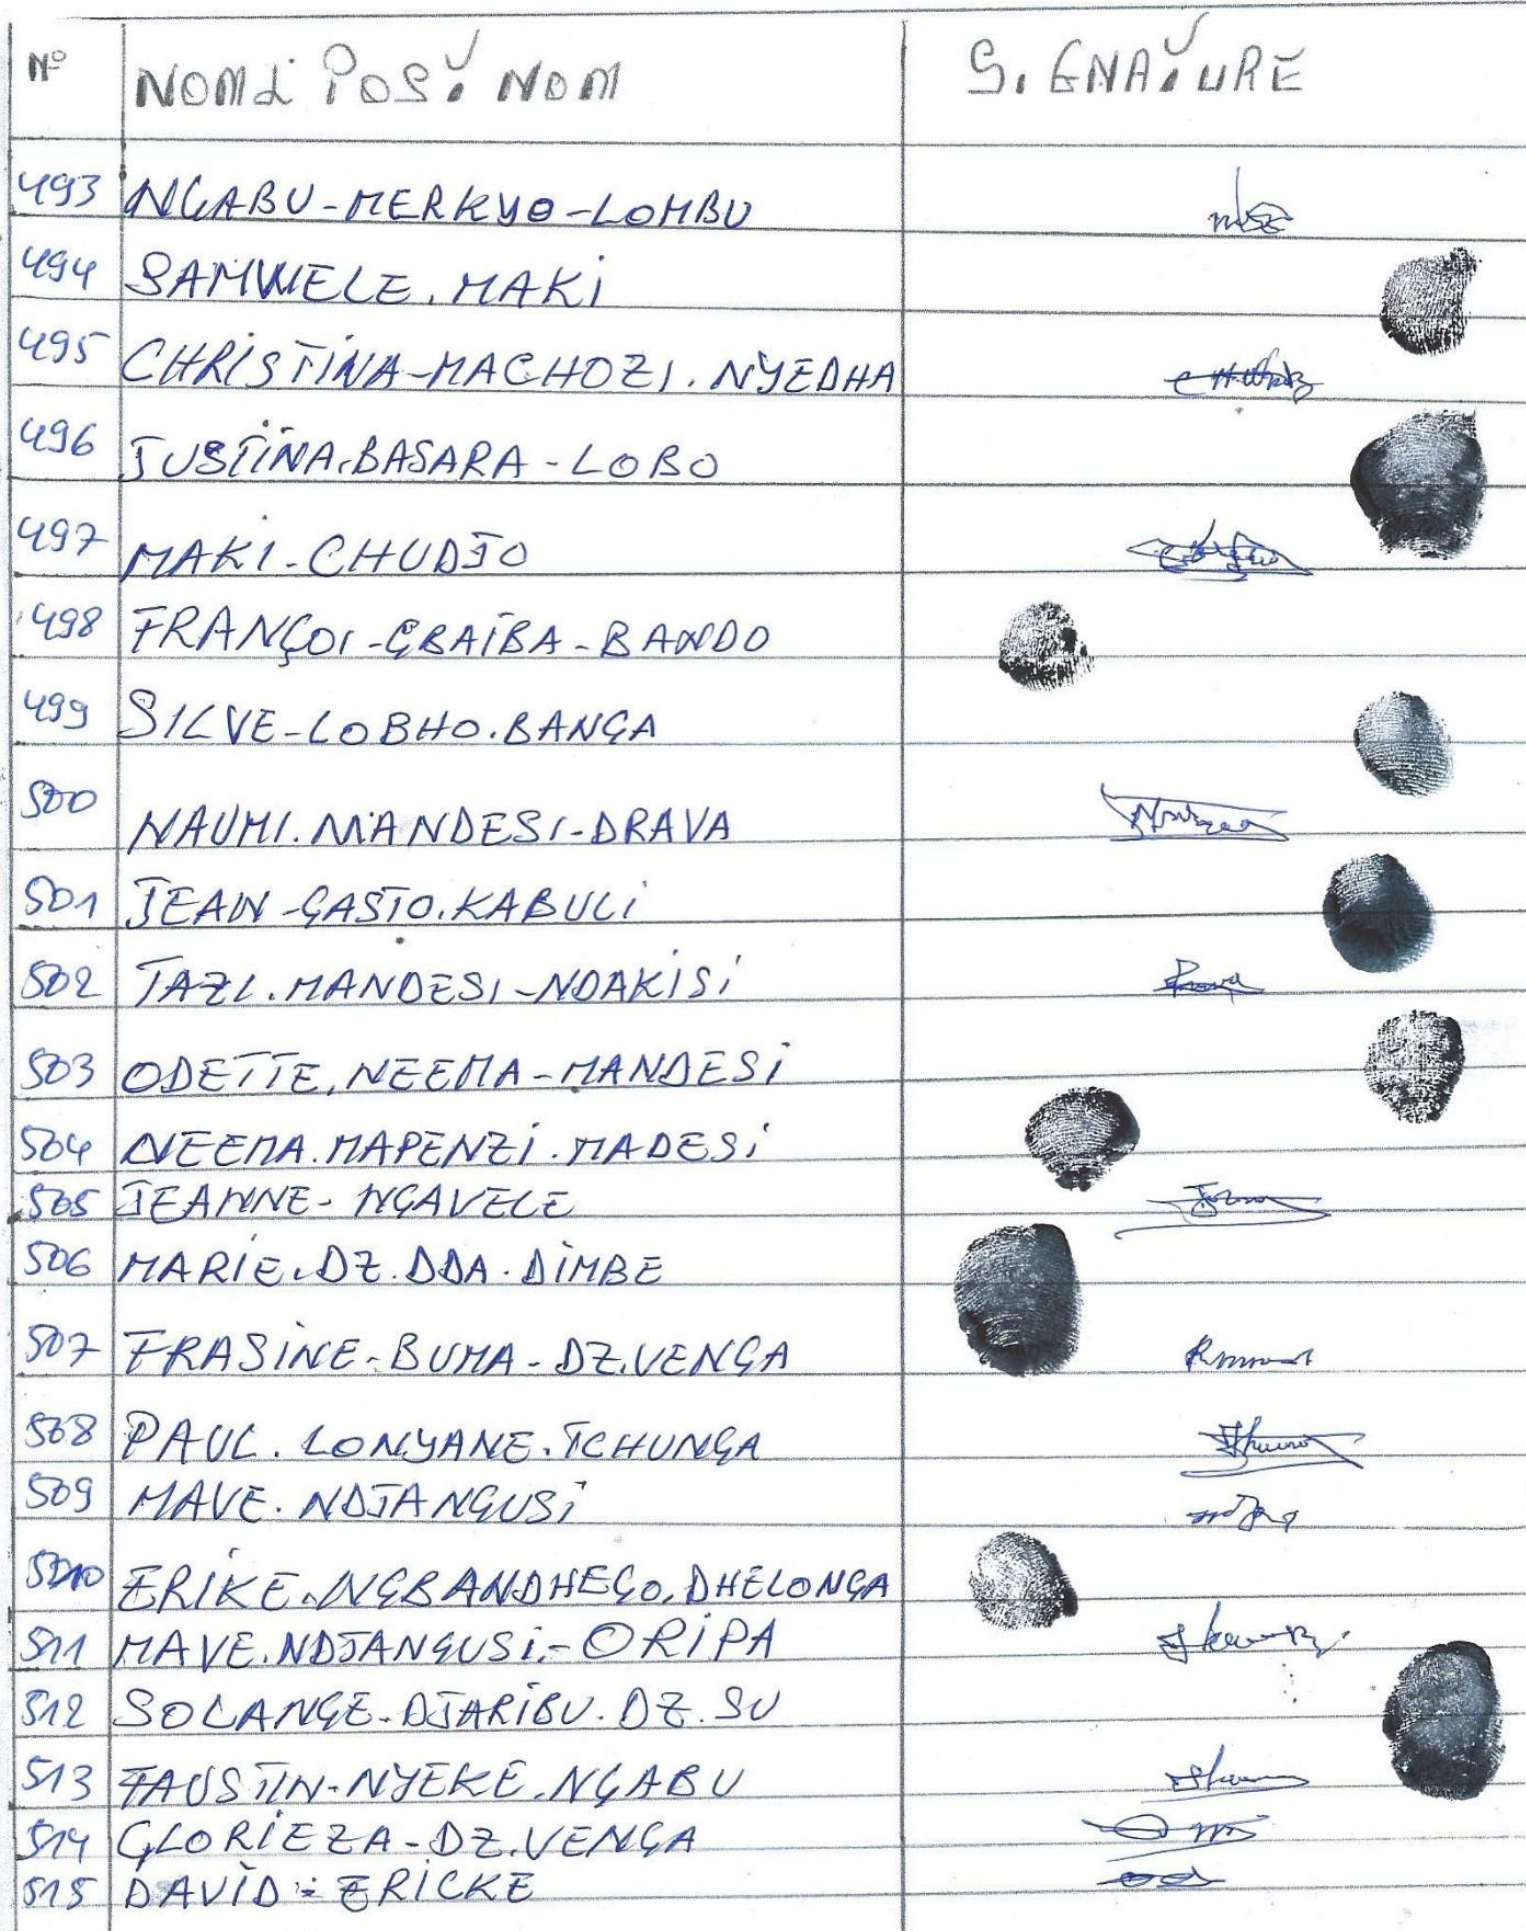 N° NOM & POST NOM SIGNATURE
493 NGABU-MERKYO-LOMBU
494 SAMWELE. MAKI
495 CHRISTINA-MACHOZI. NYEDHA
496 JUSTINA.BASARA-LOBO
497 MAKI-CHUDJO
498 FRANÇOI-GBAIBA-BANDO
499 SILVE-LOBHO.BANGA
500 NAUMI.MANDESI-DRAVA
501 JEAN-GASTO.KABULI
502 TAZI.MANDESI-NDAKISI
503 ODETTE.NEEMA-MANDESI
504 NEEMA.MAPENZI.MADESI
505 JEANNE-NGAVELE
506 MARIE.DZ.DDA.DIMBE
507 FRASINE-BUMA-DZ.VENGA
508 PAUL.LONYANE.TCHUNGA
509 MAVE.NDJANGUSI
510 ERIKE.NGBANDHEGO.DHELONGA
511 MAVE.NDJANGUSI-ORIPA
512 SOLANGE-DJARIBU.DZ.SU
513 FAUSTIN-NYEKE.NGABU
514 GLORIEZA-DZ.VENGA
515 DAVID-ERICKE